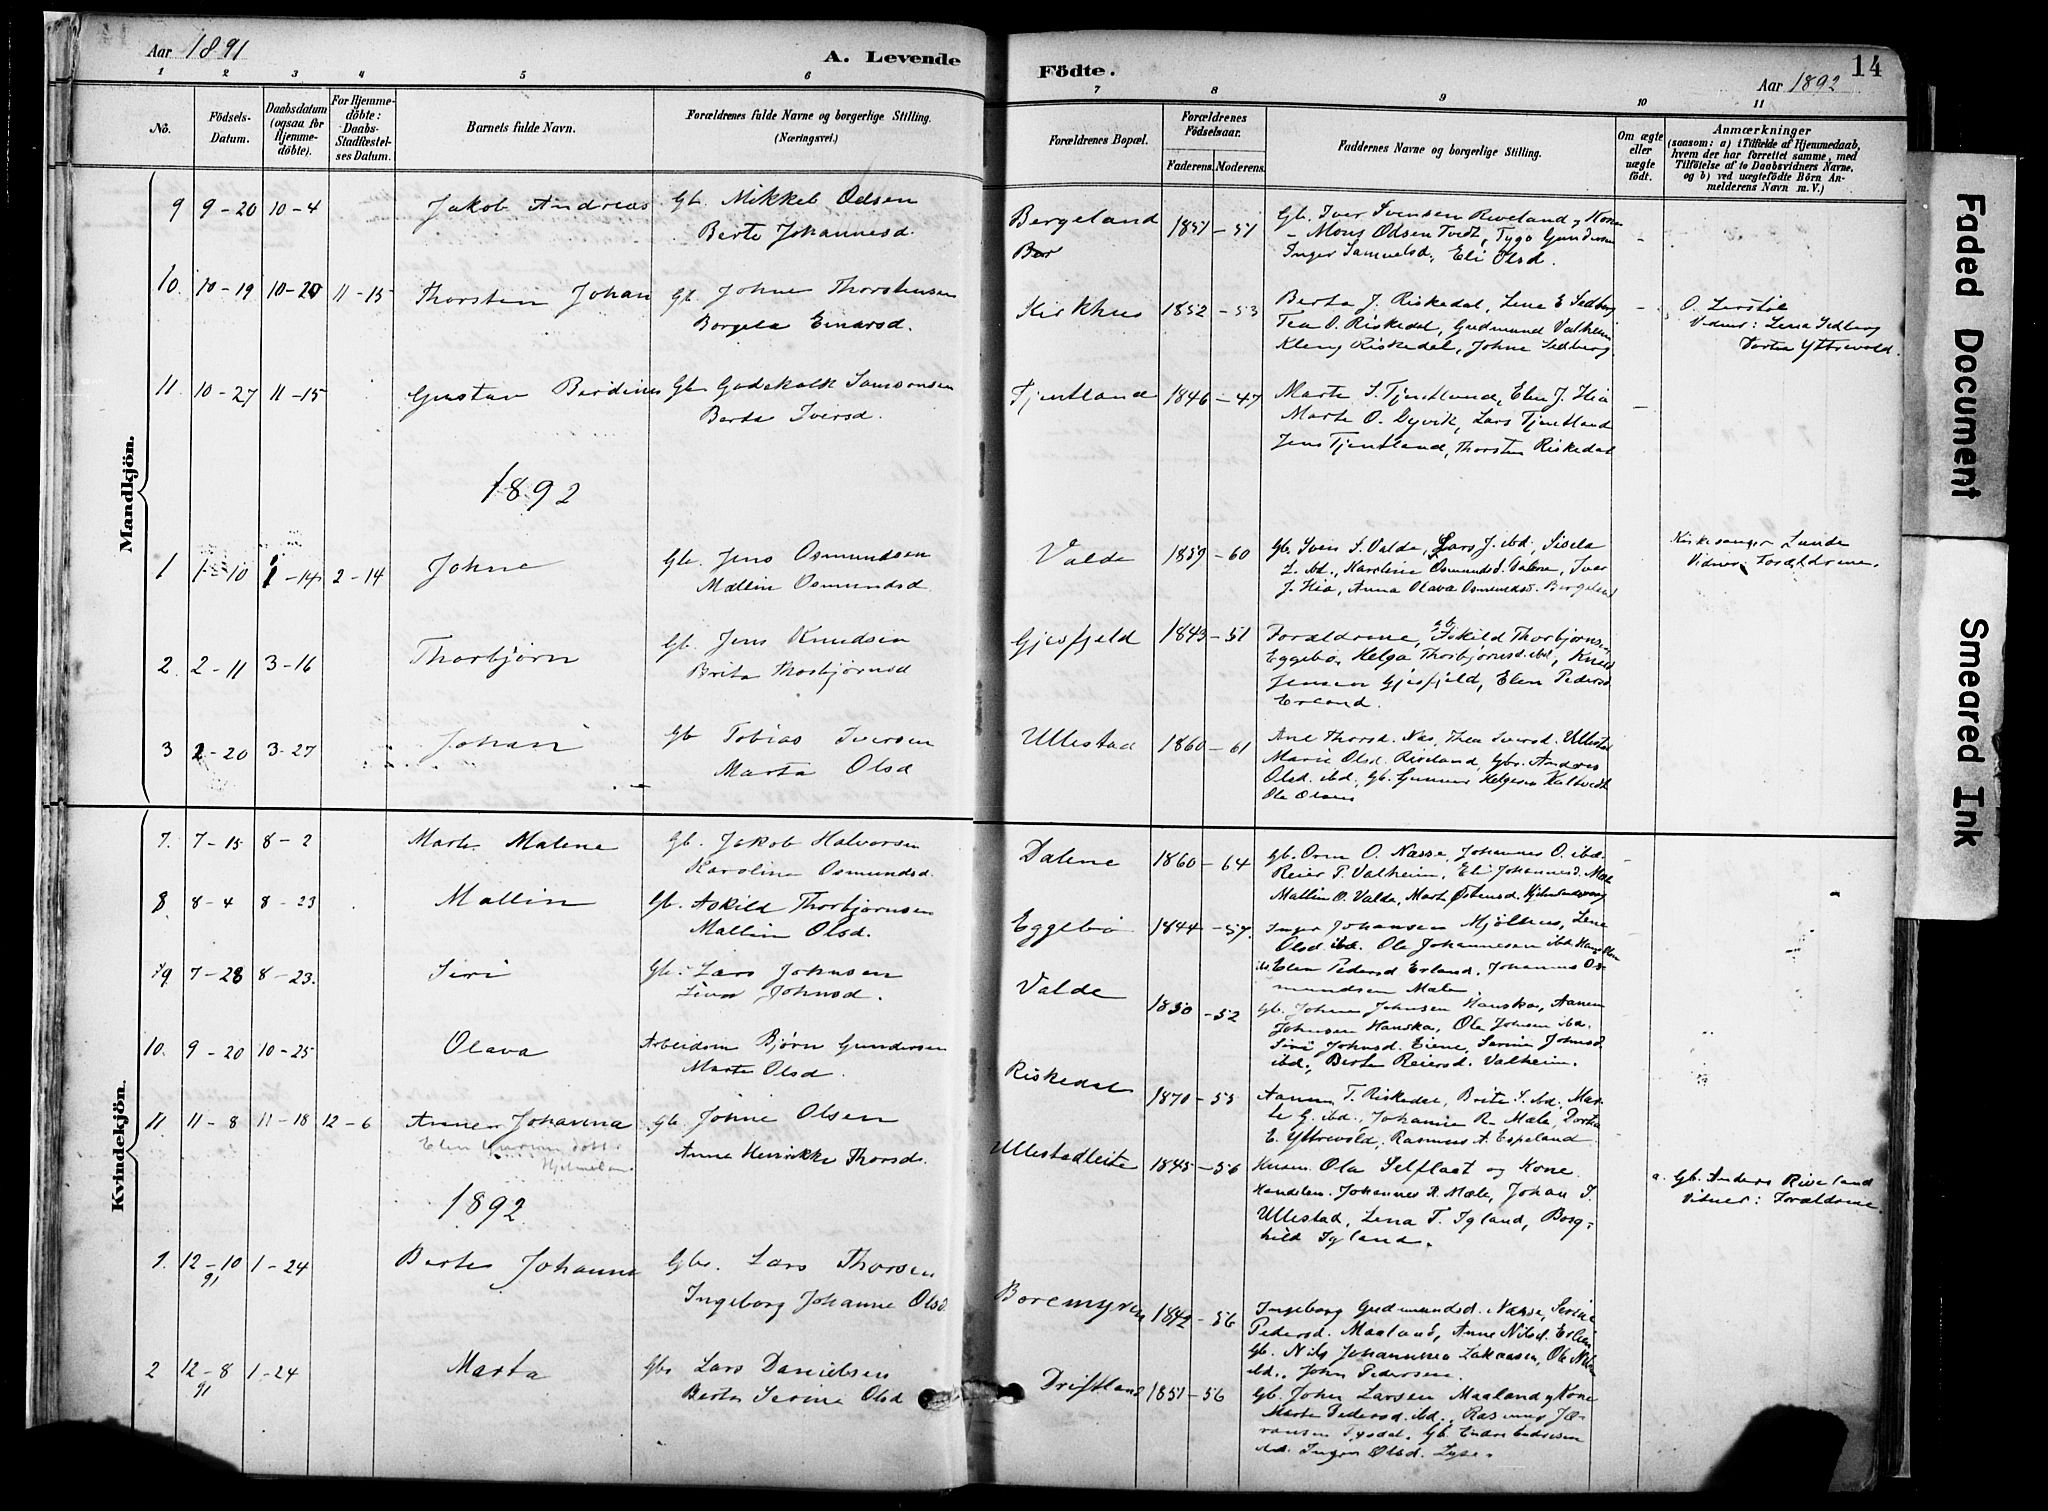 Aar 1891
A. Levende
Födte.
Aar 1892
14
1 2 3 4 5 6 7 8 9 10 11
No.
Födsels-Datum.
Daabsdatum (ogsaa for Hjemme-döbte).
For Hjemme-döbte: Daabs-Stadfæstel-ses Datum.
Barnets fulde Navn.
Forældrenes fulde Navne og borgerlige Stilling. (Næringsvei.)
Forældrenes Bopæl.
Forældrenes Födselsaar.
Faderens. Moderens.
Faddernes Navne og borgerlige Stilling.
Om ægte eller uægte födt.
Anmærkninger
(saasom: a) i Tilfælde af Hjemmedaab,
hvem der har forrettet samme, med
Tilföielse af to Daabsvidners Navne,
og b) ved uægtefödte Börn An-
melderens Navn m. V.)
Mandkjön.
9 9-20 10-4 Jakob Andreas Gb. Mikkel Odsen Bergeland 1851-51 Gb. Iver Svensen Riveland og Kone
Berte Johannesd. - Mons Odsen Tvedt, Tygo Gundersen
Inger Samuelsd., Eli Olsd.
10. 10-19 10-20 11-15 Thorstein Johan Gb. Johne Thorstensen Kirkhus 1852-53 Berta J. Riskedal, Lene E Sedberg
Borgela Einarsd. Tea O. Riskedal, Gudmund Valheim
Kleng Riskedal, Johne Sedberg
Vidner: Lena Sedberg
Dortea Yttrevold.
11. 10-27 11-15 Gustav Berdines Gb. Godskalk Samsonsen Tjentland 1846-47 Marte S. Tjentland, Elen J. Hia
Berta Iversd. Marte O. Dyvik, Lars Tjentland
Jens Tjentland, Thorsten Riskedal
1892
1 1-10 1-14 2-14 Johne Gb. Jens Osmundsen Valde 1859-60 Gb. Sven S. Valde, Lars J. ibd., Sisela
Mallin Osmundsd. L. ibd., Karoline Osmundsd. Valene, Iver
J. Hia, Anna Olava Osmundsd. Bergeland
Kirkesanger Lunde
Vidner: Forældrene.
2. 2-11 3-16 Thorbjørn Gb. Jens Knudsen Gjesfjeld 1843-51 Forældrene, Gb. Askild Thorbjørns.
Brita Thorbjørnsd Eggebø, Helga Thorbjørnsd. ibd., Knud
Jensen Gjesfjeld, Elen Pedersd
Erland.
3 2-20 3-27 Johan Gb Tobias Iversen Ullestad 1860-61 Ane Thorsd. Nes, Thea Iversd. Ullestad
Marta Olsd Marie Olsd. Riveland, Gbr. Anders
Olsd. ibd., Gb. Gunnar Helgesen Kaltvedt
Ola Olsen
Kvindekjön.
7. 7-15 8-2 Marte Malene Gb. Jakob Halvorsen Dalene 1860-64 Gb. Orm O. Nesse, Johannes O. ibd.
Karoline Osmundsd. Reier P. Valheim, Eli Johannesd. Mæle
Mallin O. Valde, Marte Østensd.
8. 8-4 8-23 Mallin Gb. Askild Thorbjørnsen Eggebø 1844-57. Inger Johansen Mjølhus, Lene
Mallin Olsd. Olsd ibd. Ola Johannesen ibd.
Elen Pedersd Erland, Johannes Os-
mundsen Mæle
9 7-28 8-23. Siri Gb. Lars Johnsen Valde 1850-52 Gb. Johnes Johnsen Hauska, Aanen
Johnsd. Johnsen Hauska, Ola Johnsen ibd.
Siri Johnsd. Eiene, Serine Johnsd.
ibd., Berte Reiersd. Valheim.
10. 9-20 10-25 Olava Arbeidsm Bjørn Gundersen Riskedal 1870-55 Aanen T. Riskedal, Brite S. ibd, Mar-
Marte Olsd. te G. ibd., Johanne R. Mæle, Dortea
E. Yttrevold, Rasmus A. Espeland
11. 11-8 11-18 12-6 Anne Johanna Gb. Johne Olsen Ullestadleite 1845-56 Husm. Ola Selflaat og Kone
Anne Henrikke Thorsd. Handelsm. Johannes R. Mæle, Johan S.
Ullestad, Lena T. Tyland, Borg-
hild Tyland.
a. Gb. Anders Riveland
Vidner: Forældrene.
1892
1. 12-10 91 1-24 Berte Johanne Gbr. Lars Thorsen Boremyren 1842-56 Ingeborg Gudmundsd. Næsse, Serine
Ingeborg Johanne Olsd. Pedersd. Maaland, Anne Nilsd. Erland
Gb. Nils Johannesen
ibd., John Pedersen.
2 12-8 91 1-24 Marta Gbr Lars Danielsen Driftland 1851-56 Gb. John Larsen Maaland og Kone
Berte Serine Olsd Marte Pedersd. ibd., Rasmus Jø-
ransen Tysdal, Gb. Endre Endresen
ibd. Inger Olsd. Lyse.
Faded Document
Smeared Ink